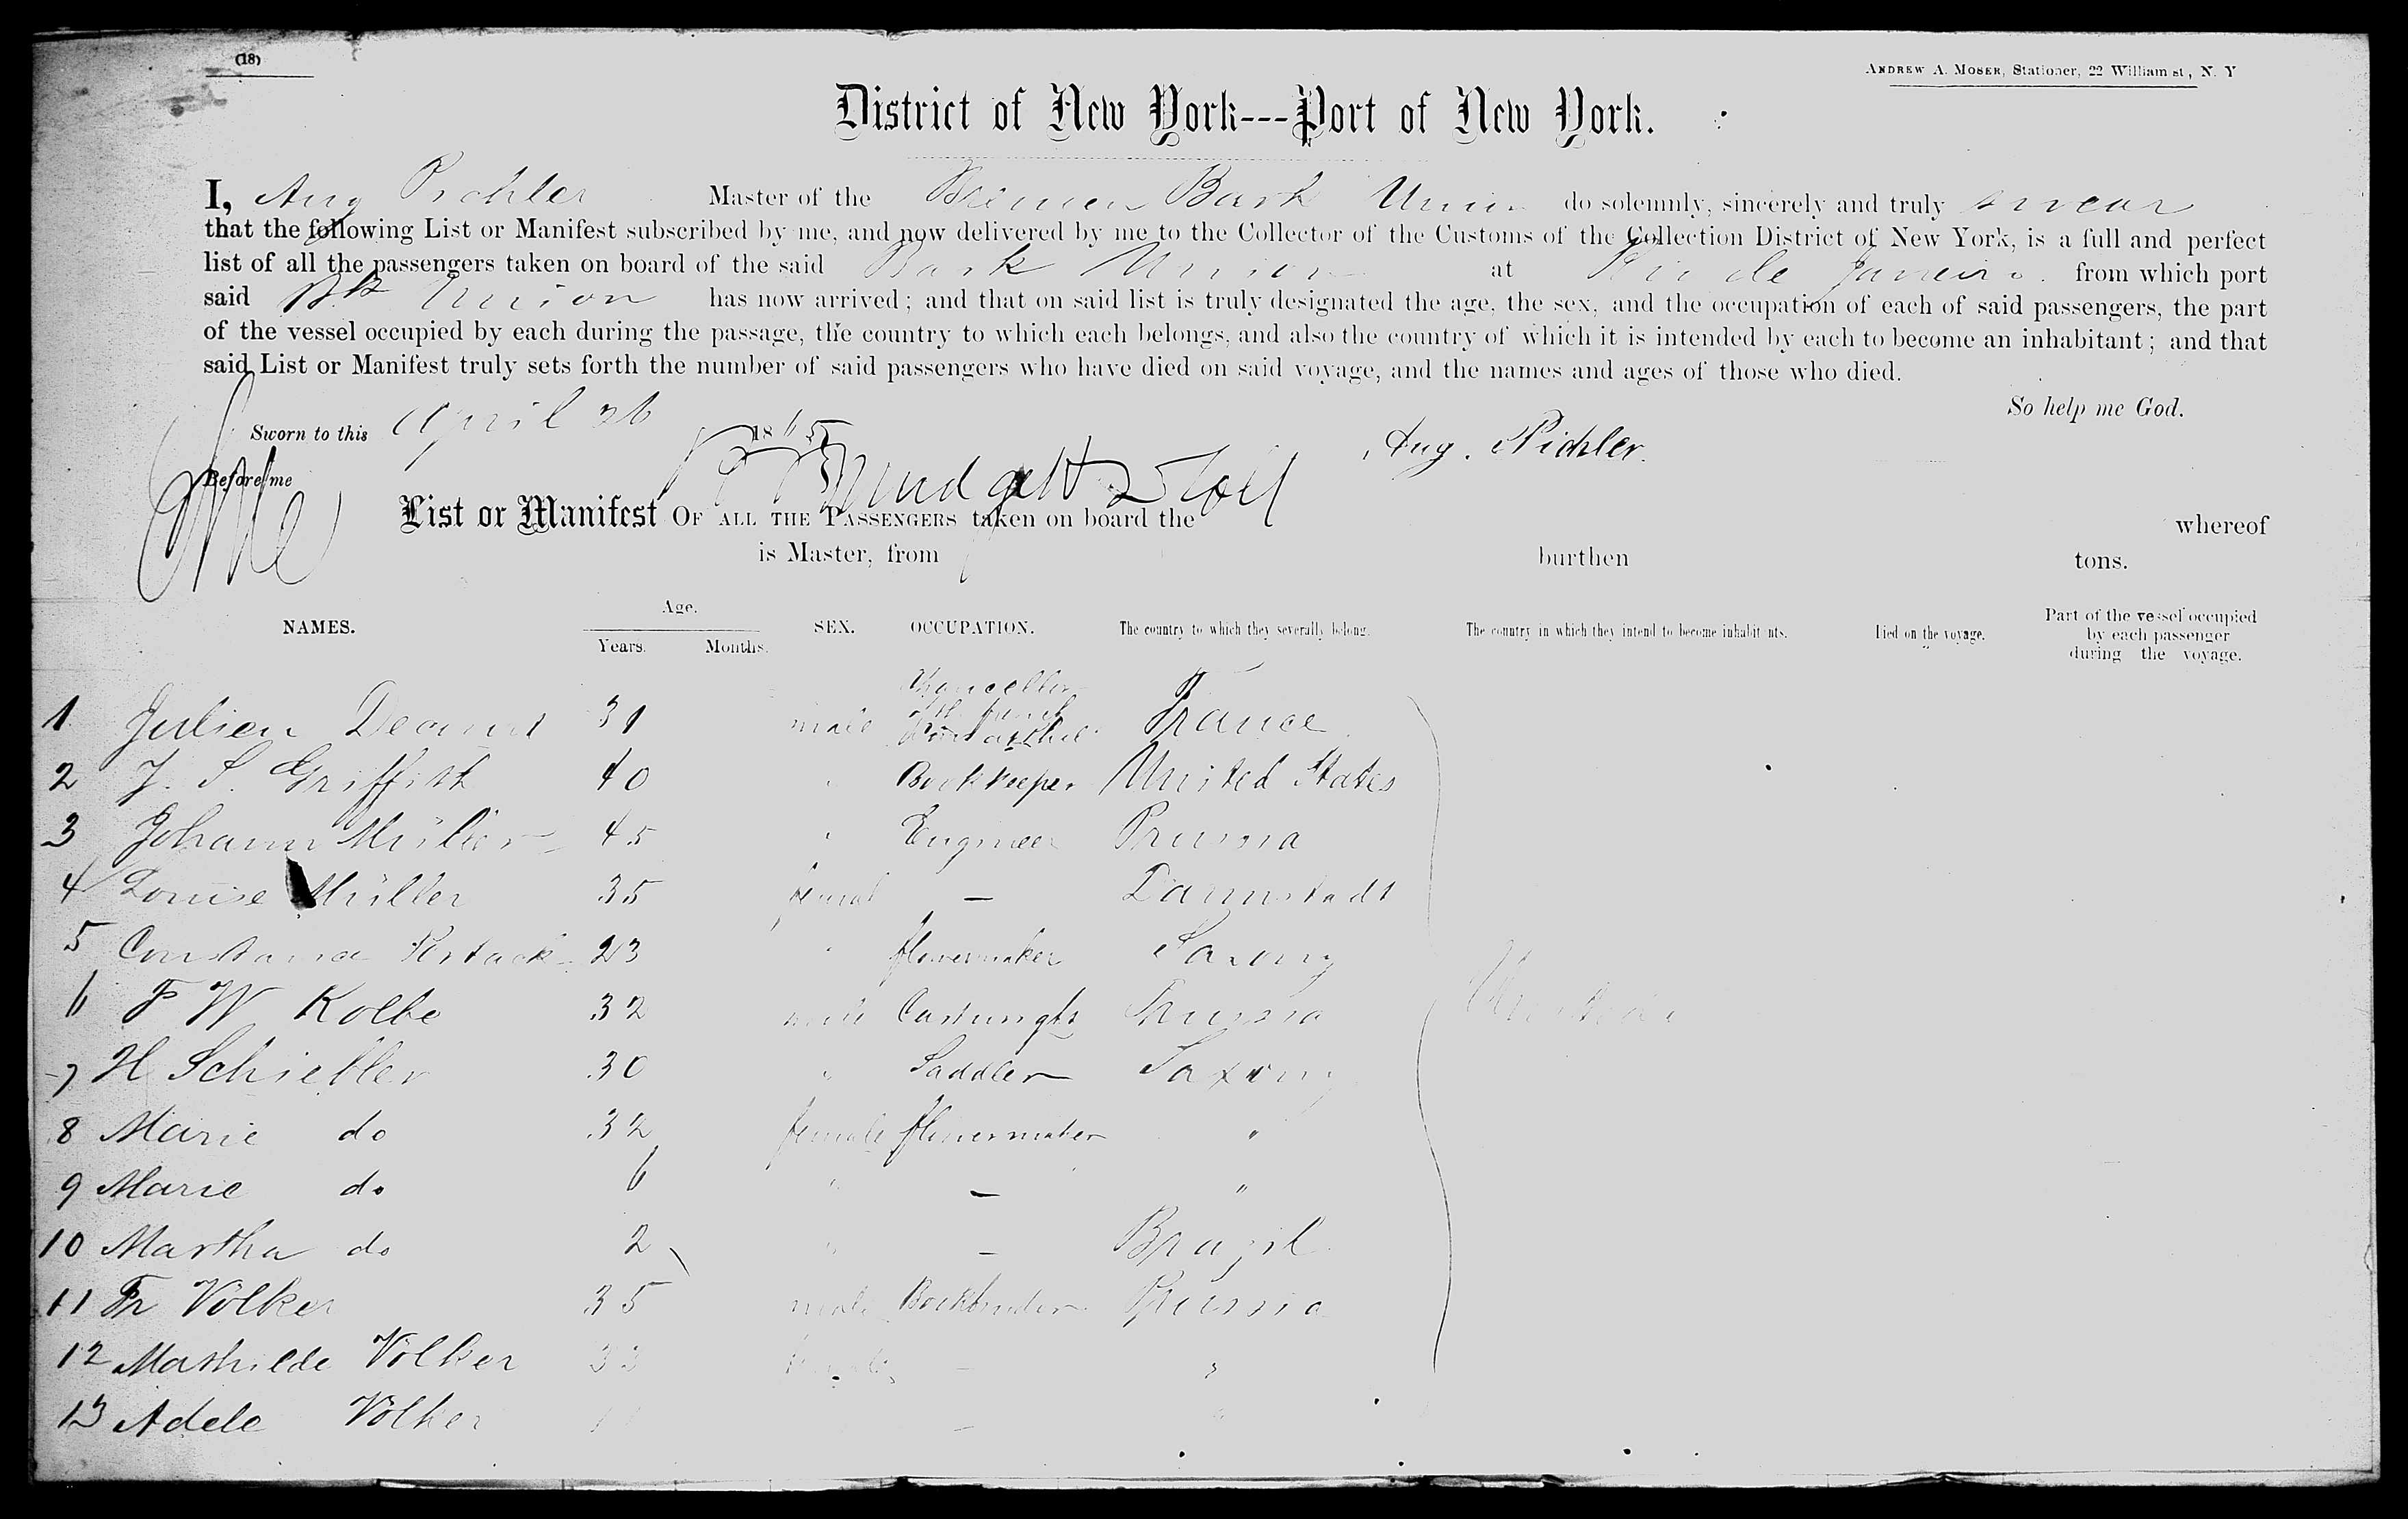 (18)
ANDREW A. MOSER, Stationer, 22 William st, N. Y
District of New York---Port of New York.
I, Aug Pichler Master of the Bremen Bark Union do solemnly, sincerely and truly swear
that the following List or Manifest subscribed by me, and now delivered by me to the Collector of the Customs of the Collection District of New York, is a full and perfect
list of all the passengers taken on board of the said Bark Union at Rio de Janeiro from which port
said Bk Union has now arrived; and that on said list is truly designated the age, the sex, and the occupation of each of said passengers, the part
of the vessel occupied by each during the passage, the country to which each belongs, and also the country of which it is intended by each to become an inhabitant; and that
said List or Manifest truly sets forth the number of said passengers who have died on said voyage, and the names and ages of those who died.
So help me God.
Sworn to this April 26 1865
Aug. Pichler.
Before me
List or Manifest OF ALL THE PASSENGERS taken on board the whereof
is Master, from burthen tons.
NAMES. Age. Years. Months. SEX. OCCUPATION. The country to which they severally belong. The country in which they intend to become inhabitnts. Died on the voyage. Part of the vessel occupied by each passenger during the voyage.
1 Julien 31 male Chancellor France
2 J. S. Griffith 40 " Bookkeeper United States
3 Johann Müller 45 " Engineer Prussia
4 Louise Müller 35 femal — Darmstadt
5 23 " flowermaker Saxony
6 F W Kolbe 32 male Prussia
7 H Schiebler 30 " Saddler Saxony
8 Marie do 32 female flowermaker "
9 Marie do 6 " — "
10 Martha do 2 " — Brazil
11 Fr Völker 35 male Bookbinder Prussia
12 Mathilde Völker 33 female — "
13 Adele Völker 11 — "